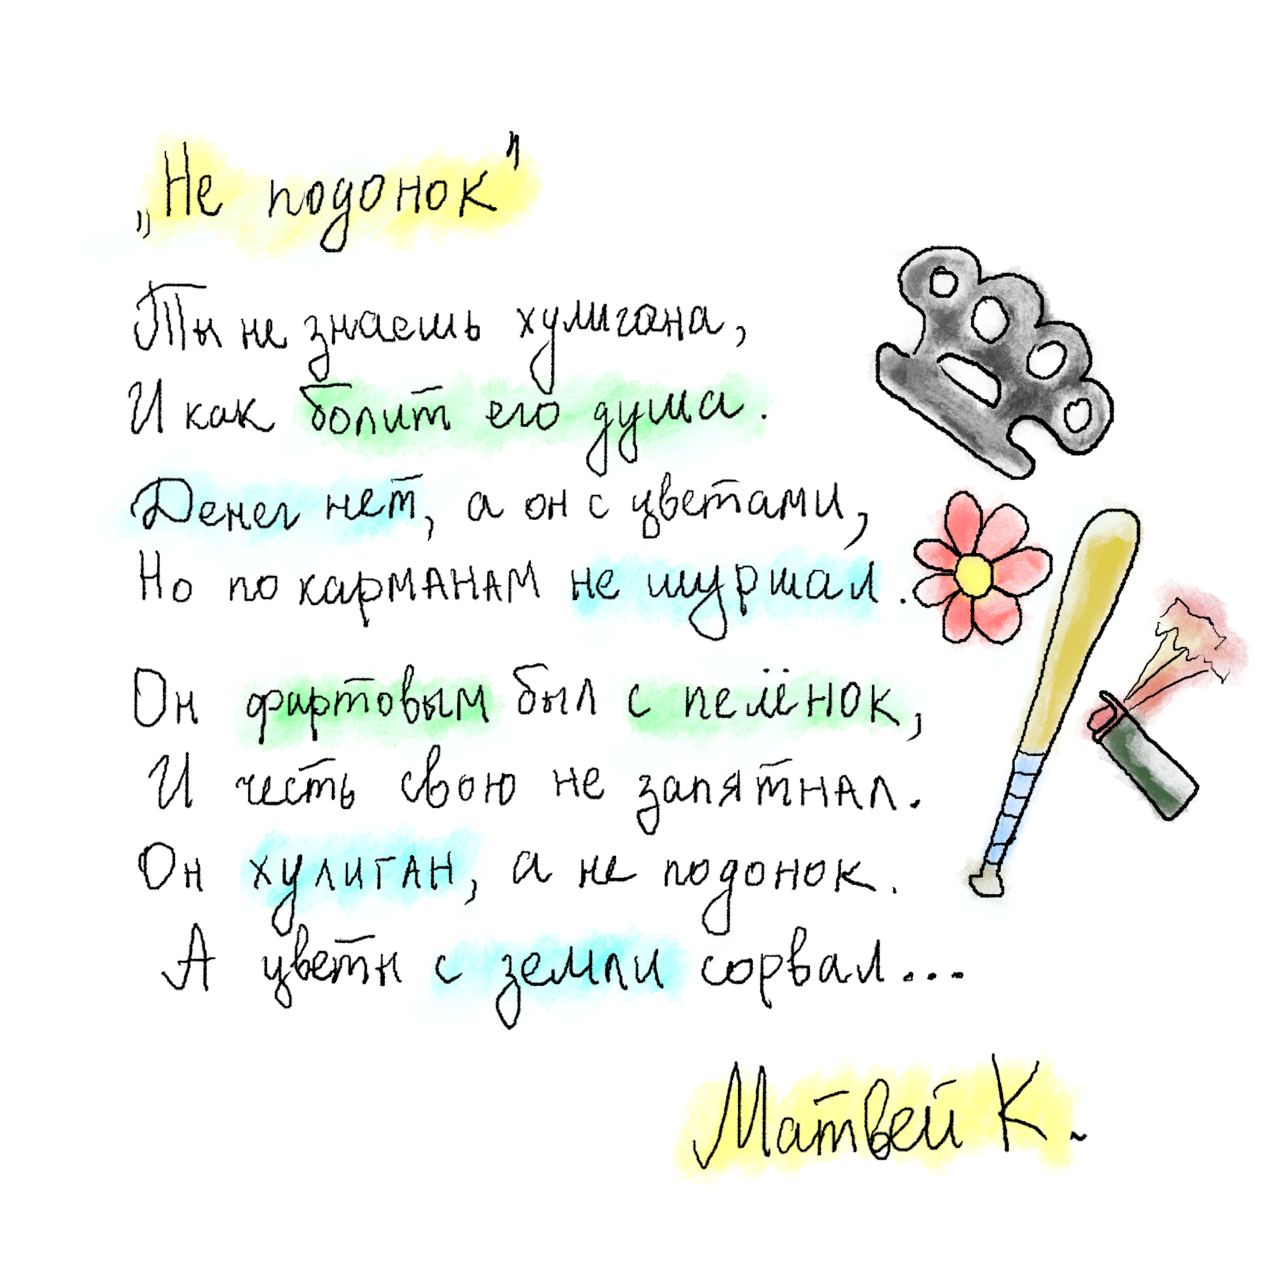 „Не подонок"
Ты не знаешь хулигана,
И как болит его душа.
Денег нет, а он с цветами,
Но по карМАНАМ не шуршал.
Он фартовым был с пелёнок,
И честь свою не запятнал.
Он хулиган, а не подонок.
А цветы с земли сорвал...
Матвей К.